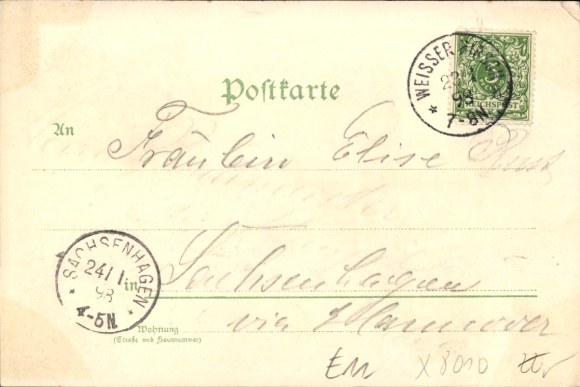 Postkarte
WEISSER HIRSCH
23/1
98
7-8N
REICHSPOST
An
Fräulein Elise Rust
SACHSENHAGEN
24/1
98
4-5N
in
Sachsenhagen
via Hannover
Wohnung
(Straße und Hausnummer)
X8010